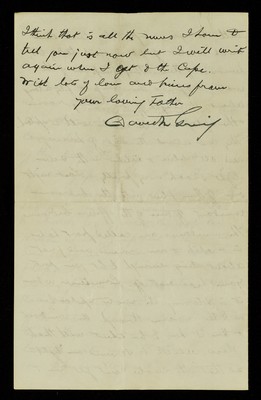 I think that is all the news I have to
tell you just now but I will write
again when I get to the Cape.
With lots of love and kisses from
your loving Father
David